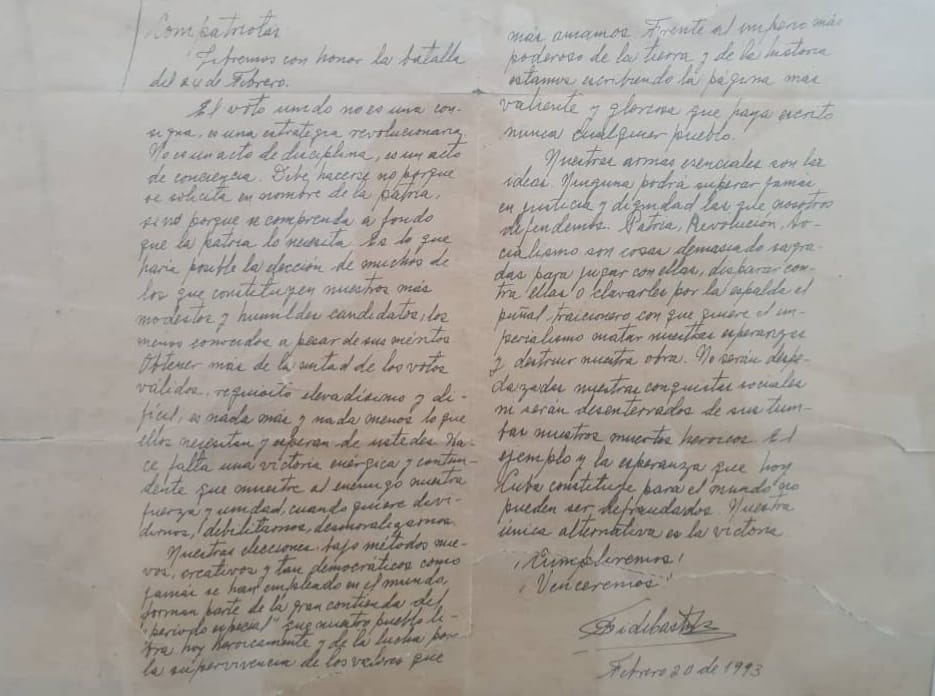 Compatriotas
¡Libremos con honor la batalla
del 24 de Febrero.
El voto unido no es una con-
signa, es una estrategia revolucionaria.
No es un acto de disciplina, es un acto
de conciencia. Debe hacerse no porque
se solicita en nombre de la patria,
sino porque se comprenda a fondo
que la patria lo necesita. Es lo que
haría posible la elección de muchos de
los que constituyen nuestros más
modestos y humildes candidatos, los
menos conocidos a pesar de sus méritos
Obtener más de la mitad de los votos
válidos, requisito elevadísimo y di-
fícil, es nada más y nada menos lo que
ellos necesitan y esperan de ustedes. Ha-
ce falta una victoria enérgica y contun-
dente que muestre al enemigo nuestra
fuerza y unidad, cuando quiere divi-
dirnos, debilitarnos, desmoralizarnos.
Nuestras elecciones, bajo métodos nue-
vos, creativos y tan democráticos como
jamás se han empleado en el mundo,
forman parte de la gran contienda del
"período especial" que nuestro pueblo li-
bra hoy heroicamente y de la lucha por
la supervivencia de los valores que
más amamos. Frente al imperio más
poderoso de la tierra y de la historia
estamos escribiendo la página más
valiente y gloriosa que haya escrito
nunca cualquier pueblo.
Nuestras armas esenciales son las
ideas. Ninguna podrá superar jamás
en justicia y dignidad las que nosotros
defendemos. Patria, Revolución, So-
cialismo son cosas demasiado sagra-
das para jugar con ellas, disparar con-
tra ellas o clavarles por la espalda el
puñal traicionero con que quiere el im-
perialismo matar nuestras esperanzas
y destruir nuestra obra. No serán despe-
dazadas nuestras conquistas sociales
ni serán desenterrados de sus tum-
bas nuestros muertos heroicos. El
ejemplo y la esperanza que hoy
Cuba constituye para el mundo no
pueden ser defraudados. Nuestra
única alternativa es la victoria
¡Cumpliremos!
¡Venceremos!
Fidel Castro
Febrero 20 de 1993